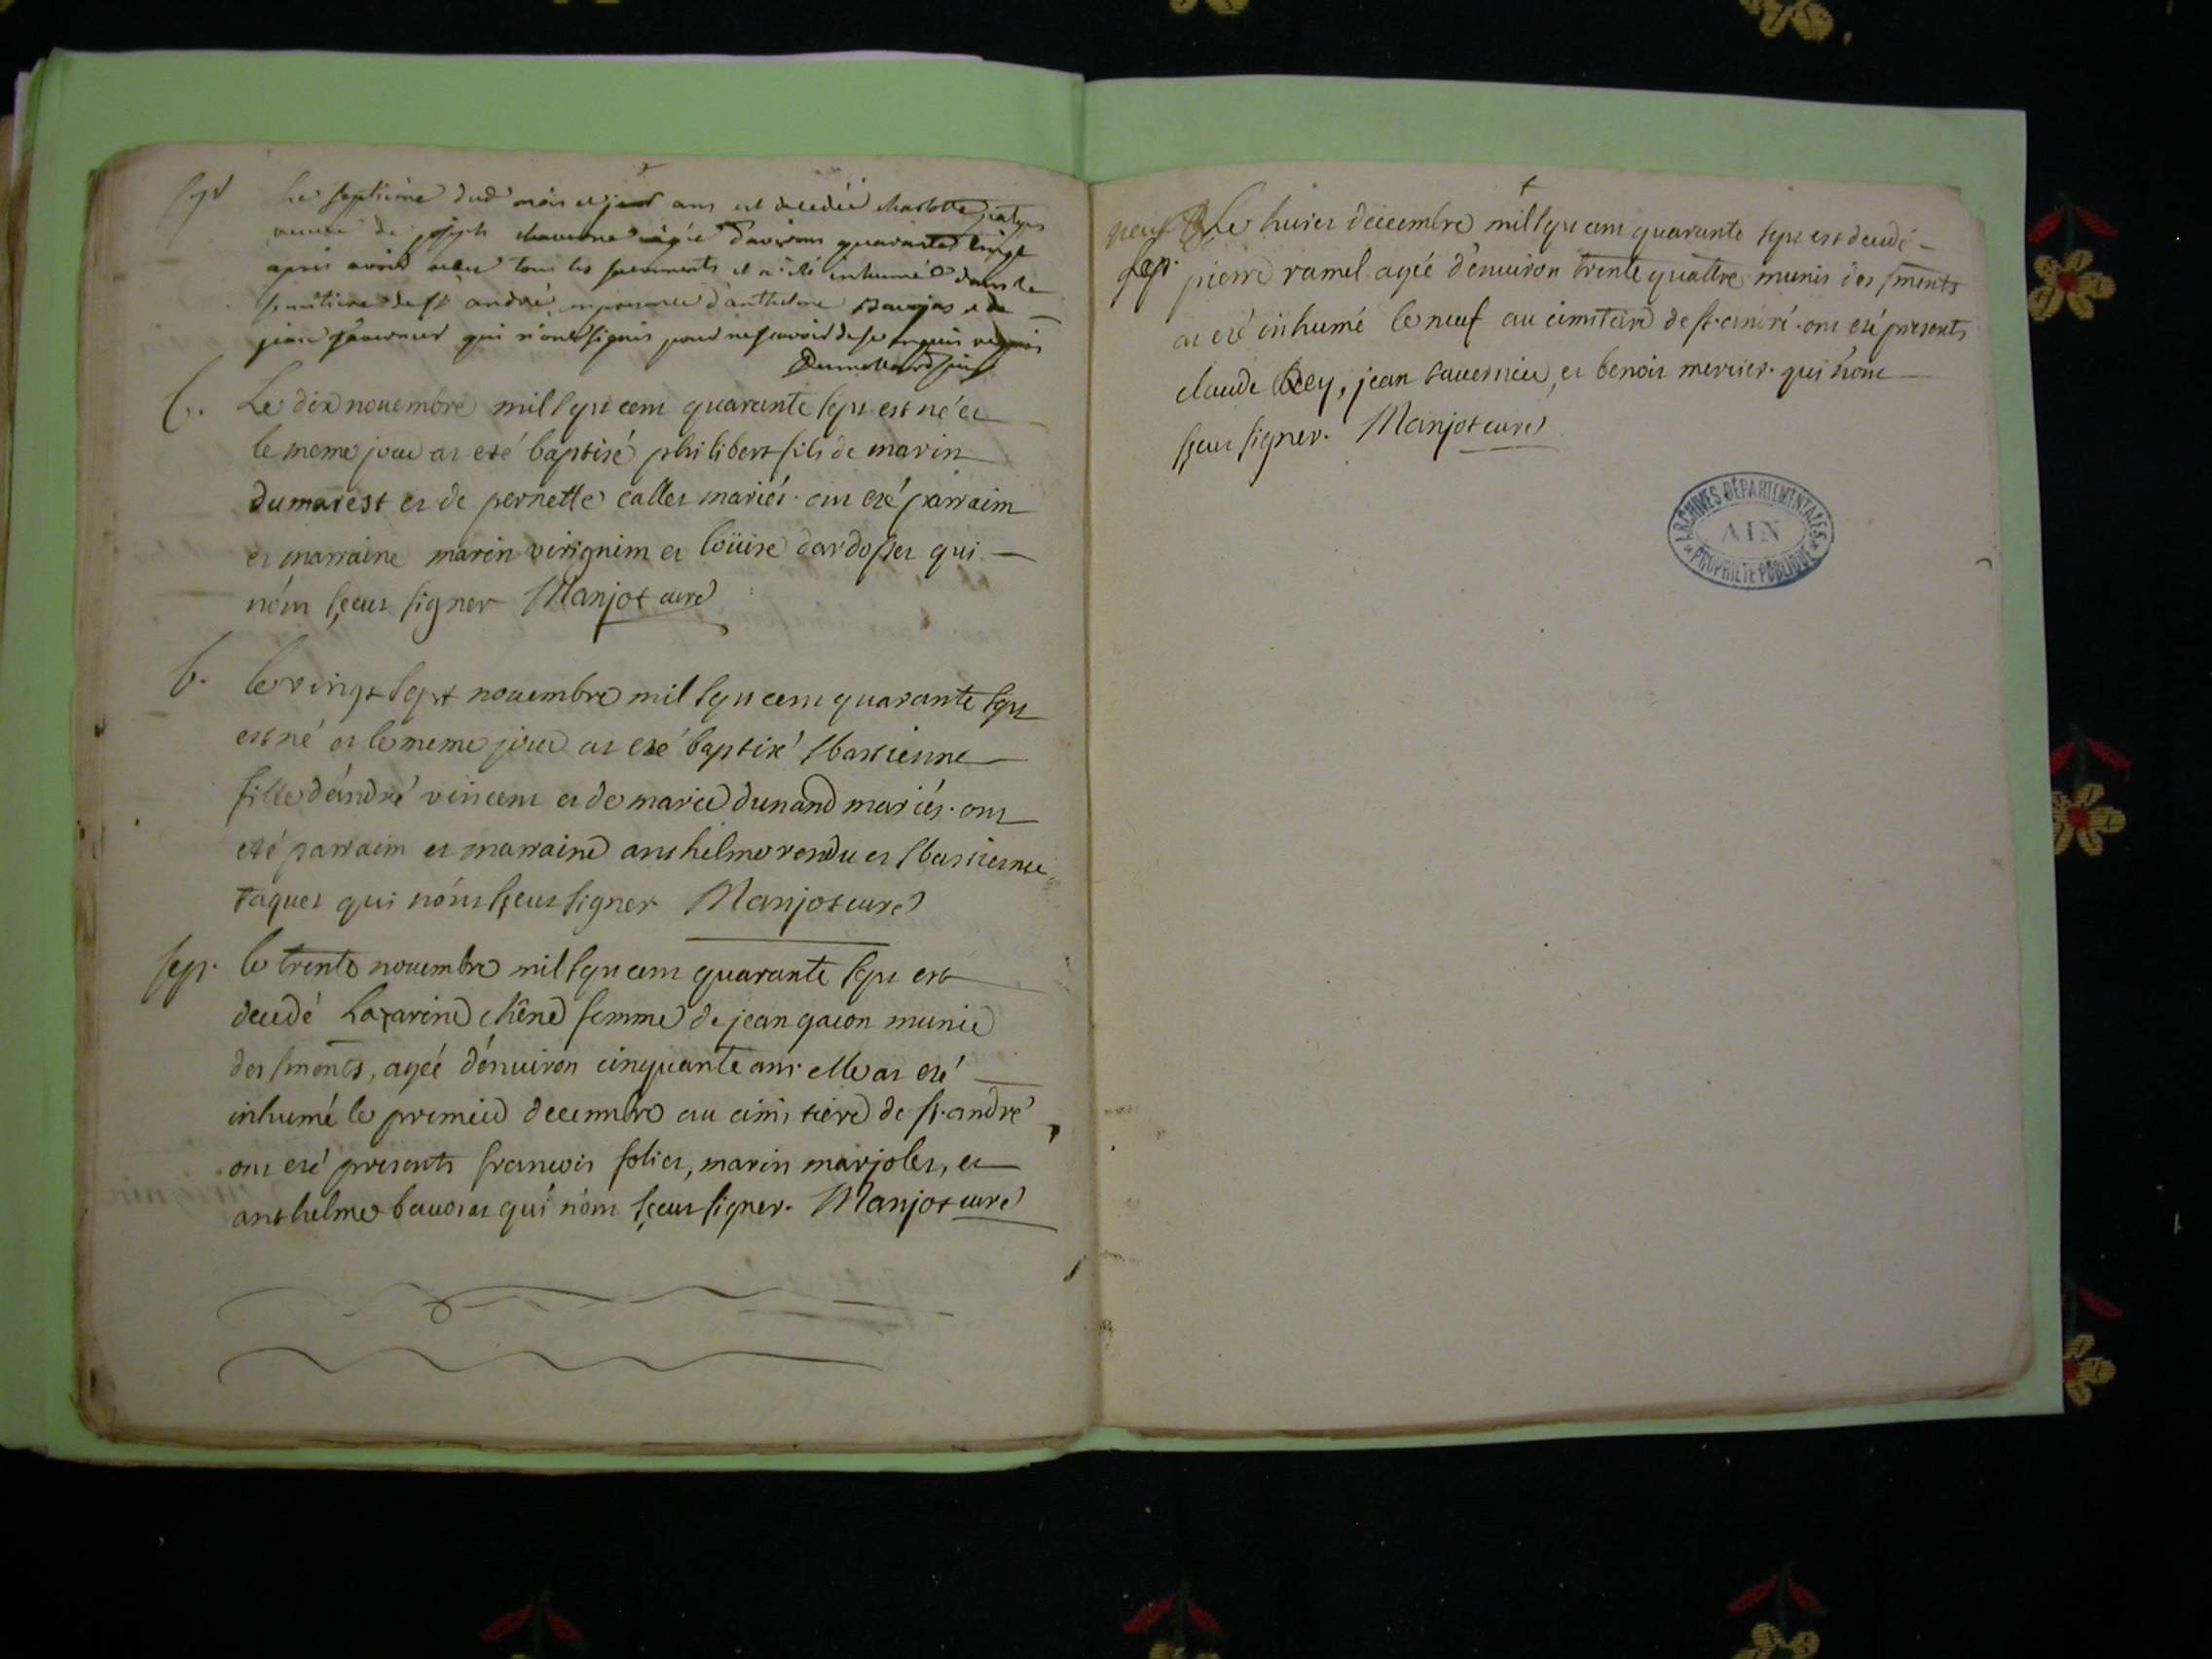 sep
Le septieme dud mois et jour ans est decedée charlotte
veuve de joseph chavanne agée d'environ quarante
apres avoir recu tous les sacrements et a été inhumée dans le
simitiere de st andré en presence d'anthelme Baujas et de
jean tavernier qui n'ont signés pour ne scavoir de ce enquis requis
b. Le dix nouembre mil sept cent quarante sept est né et
le meme jour at eté baptisé philibert fils de marin
dumarest et de pernette callet mariés. ont eté parraim
et marraine marin virignim et loüise dardosset qui
nónt sçeut signer Manjot curé
b. le vingt sept nouembre mil sept cent quarante sept
est né et le meme jour at eté baptisé sbastienne
fille d'andré vincent et de marie dunand mariés. ont
eté parraim et marraine anthelme rendu et sbastienne
taquet qui nónt sçeut signer Manjot curé
sep. le trente nouembre mil sept cent quarante sept est
decedé Lazarine chêne femme de jean gacon munie
des sments, ageé dénuiron cinquante ans elle at eté
inhumé le premier decembre au cimitiere de st. andré
ont eté presents francois folliet, marin marjolet, et
anthelme baudias qui nónt sçeut signer. Manjot curé
Le huict decembre mil sept cent quarante sept est decedé
sep. pierre ramel ageé dénuiron trente quattre munis des sments
at eté inhumé le neuf au cimitiere de st. andré. ont eté presents
claude Rey, jean tavernier, et benoit mercier. qui nónt
sçeut signer. Manjot curé
ARCHIVES DÉPARTEMENTALES
AIN
PROPRIÉTÉ PUBLIQUE